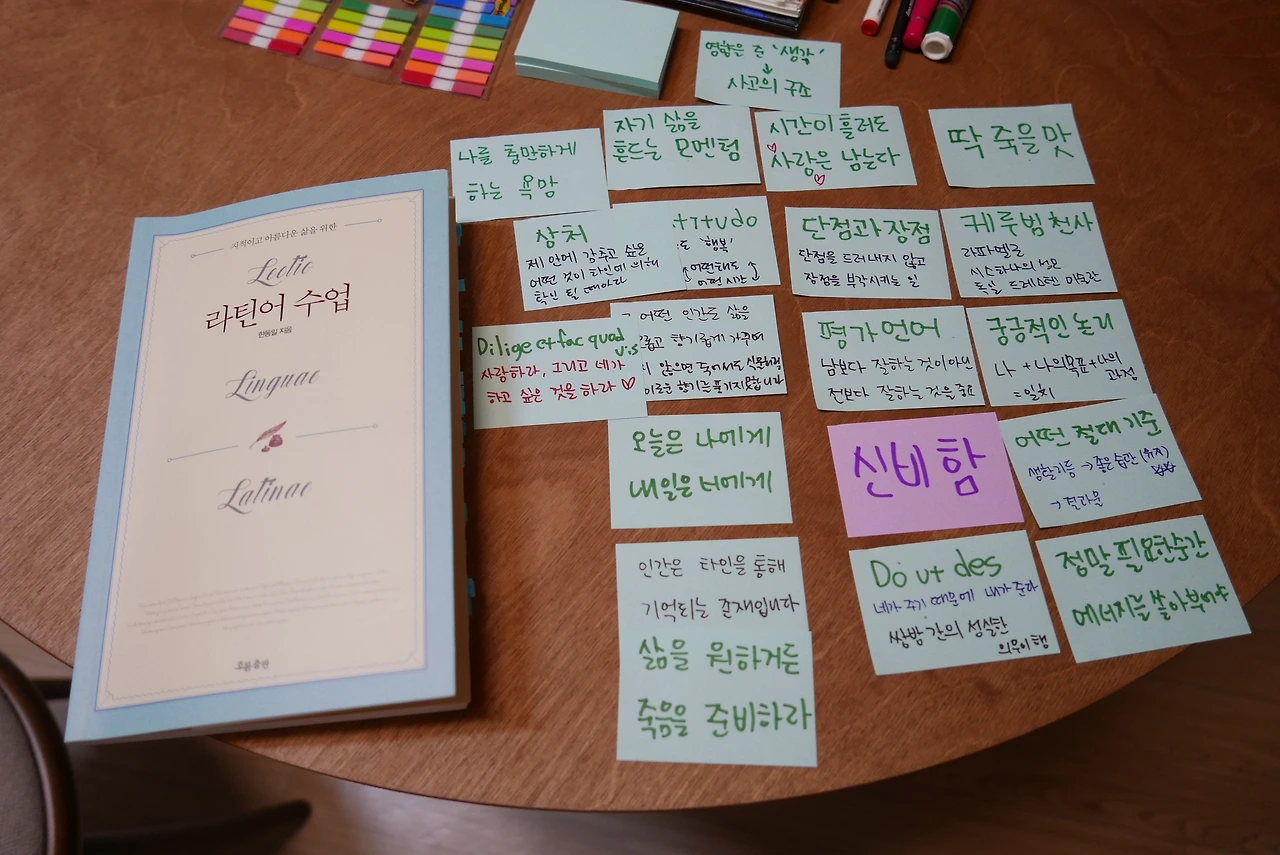 지적이고 아름다운 삶을 위한
Lectio
라틴어 수업
한동일 지음
Linguae
Latinae
흐름출판
영향을 준 '생각'
↓
사고의 구조
나를 충만하게
하는 욕망
자기 삶을
흔드는 모멘텀
시간이 흘러도
♡ 사랑은 남는다
♡
딱 죽을 맛
상처
제 안에 감추고 싶은
어떤 것이 타인에 의해
확인 될 때마다
titudo
'행복'
어떤 태도
어떤 시간
단점과 장점
단점을 드러내지 않고
장점을 부각시키는 일
케루빔 천사
라파엘로
시스티나의 성모
독일 드레스덴 미술관
Dilige et fac quod
vis
사랑하라, 그리고 네가
하고 싶은 것을 하라 ♡
어떤 인간도 삶을
롭고 향기롭게 가꾸며
지 않으면 죽어서도 식물처럼
이로운 향기를 풍기지 못합니다
평가 언어
남보다 잘하는 것이 아닌
전보다 잘하는 것을 중요
궁극적인 논리
나 + 나의 목표 + 나의
과정
= 일치
오늘은 나에게
내일은 너에게
신비함
어떤 절대 기준
생활리듬 → 좋은 습관 (유지)
→ 결과물
인간은 타인을 통해
기억되는 존재입니다
삶을 원하거든
죽음을 준비하라
Do ut des
네가 주기 때문에 내가 준다
쌍방 간의 성실한
의무이행
정말 필요한 순간
에너지를 쏟아부어야